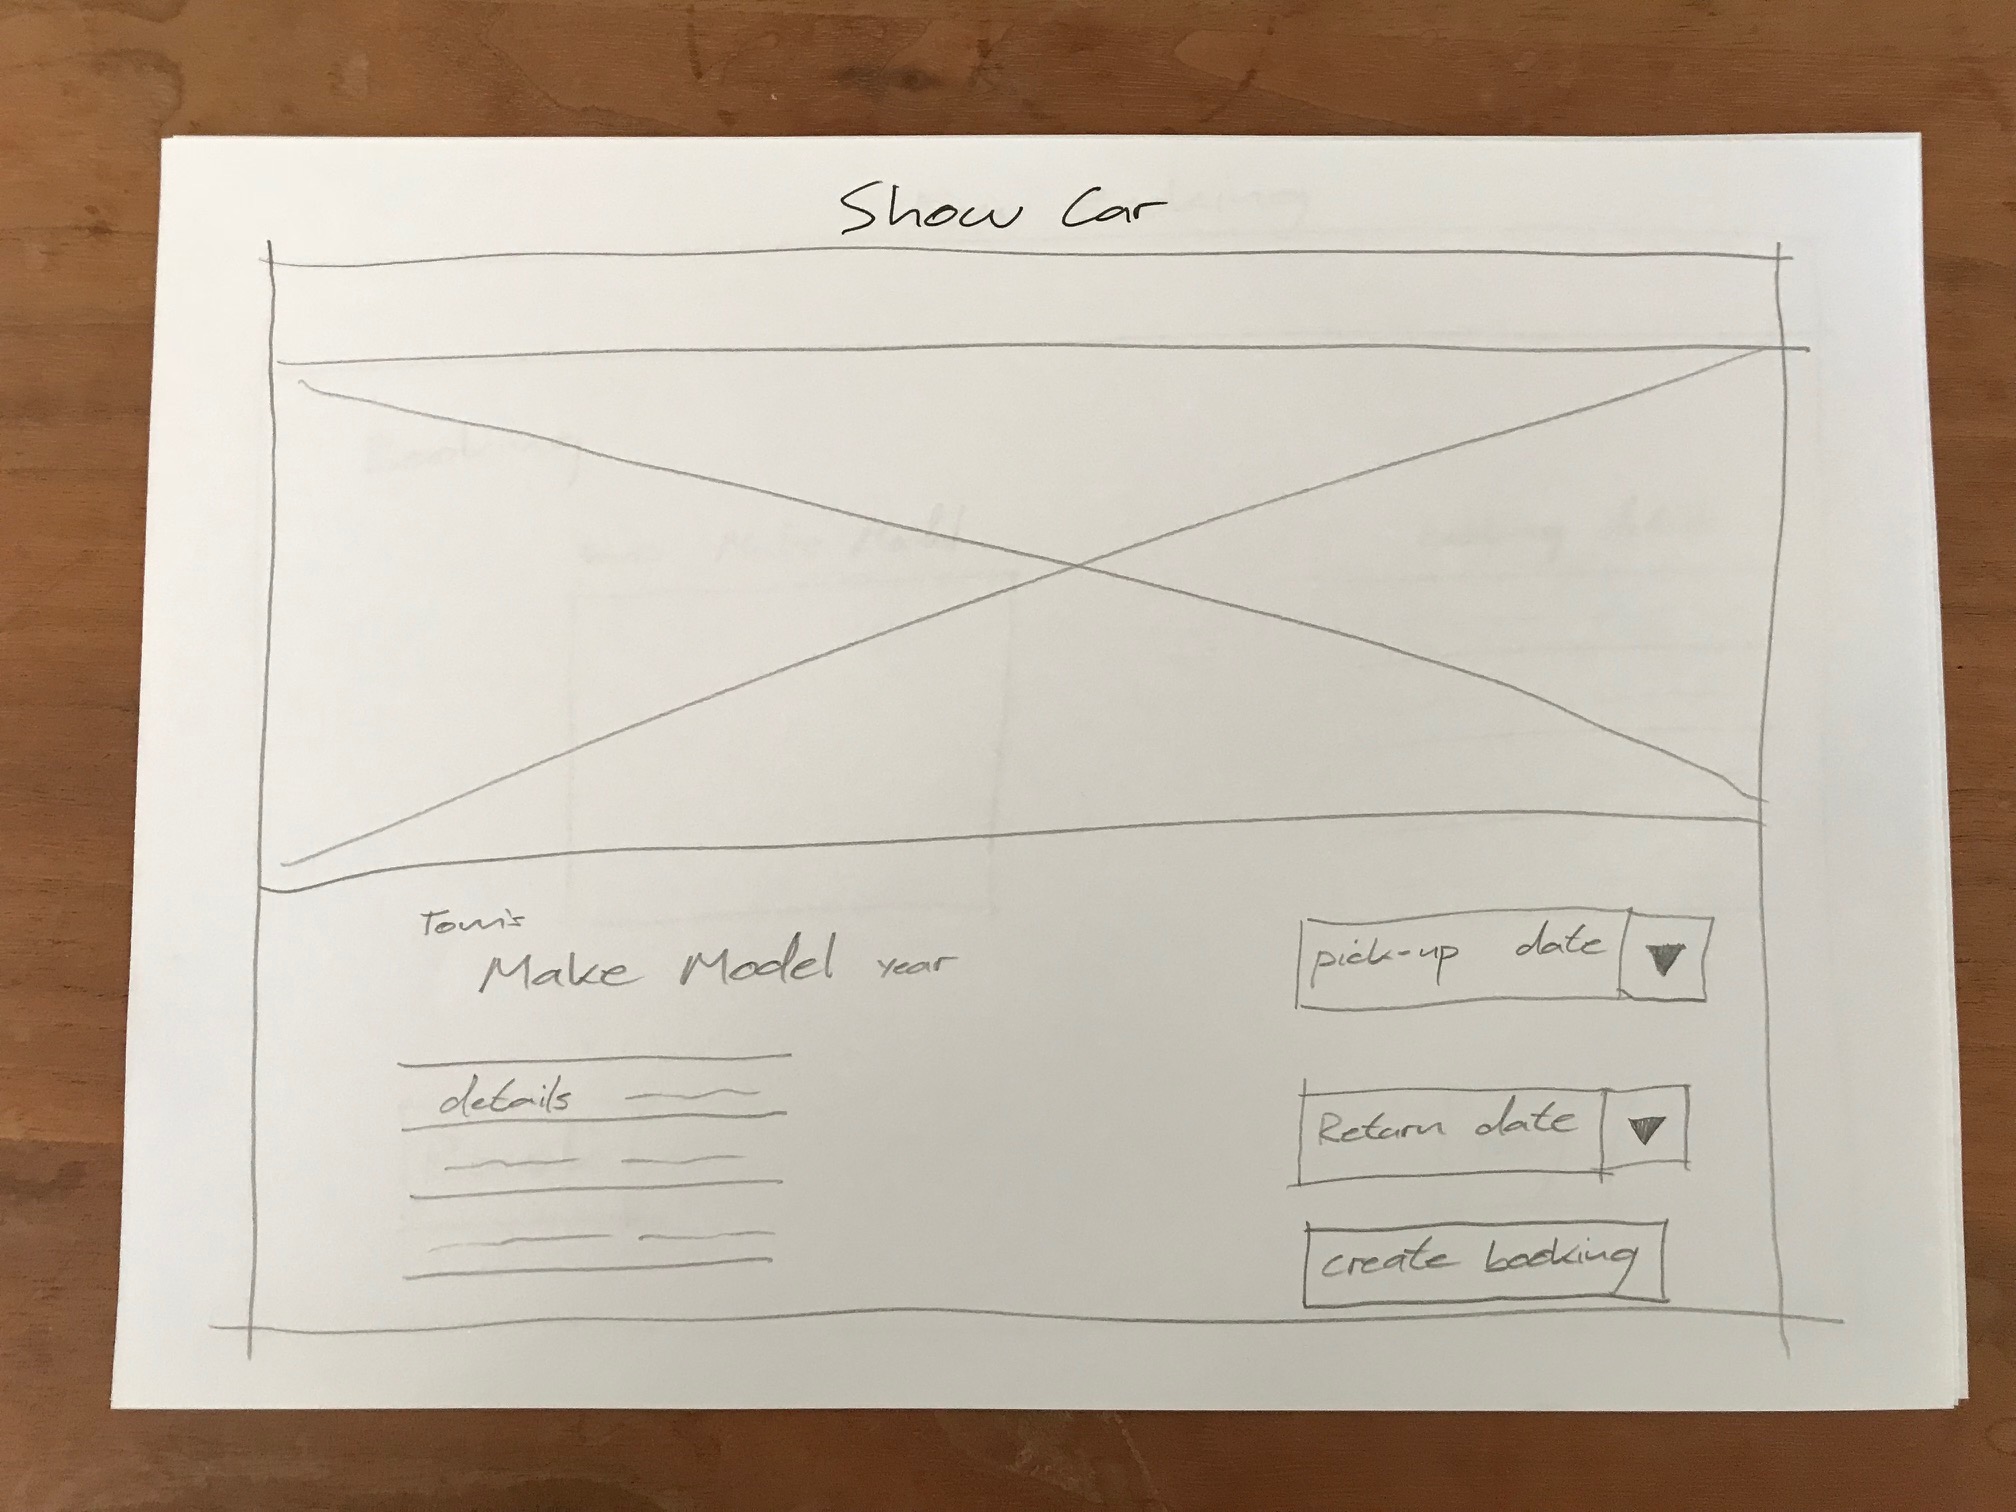 Show Car
Tom's
Make Model year
details
pick-up date
Return date
create booking